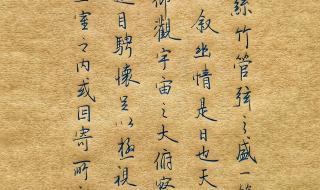 絲竹管弦之盛一
叙幽情是日也天
仰觀宇宙之大俯察
遊目騁懷足以極視
一室之内或因寄所